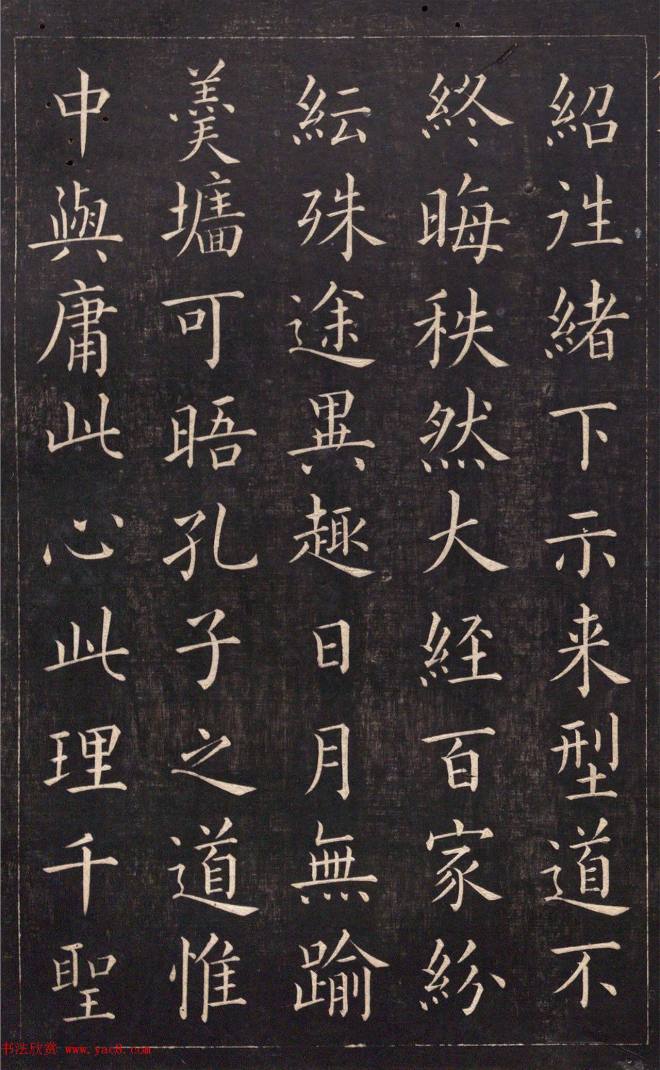 紹徃緒下示来型道不
終晦秩然大經百家紛
紜殊途異趣日月無踰
羮墻可晤孔子之道惟
中與庸此心此理千聖
书法欣赏 www.yac8.com